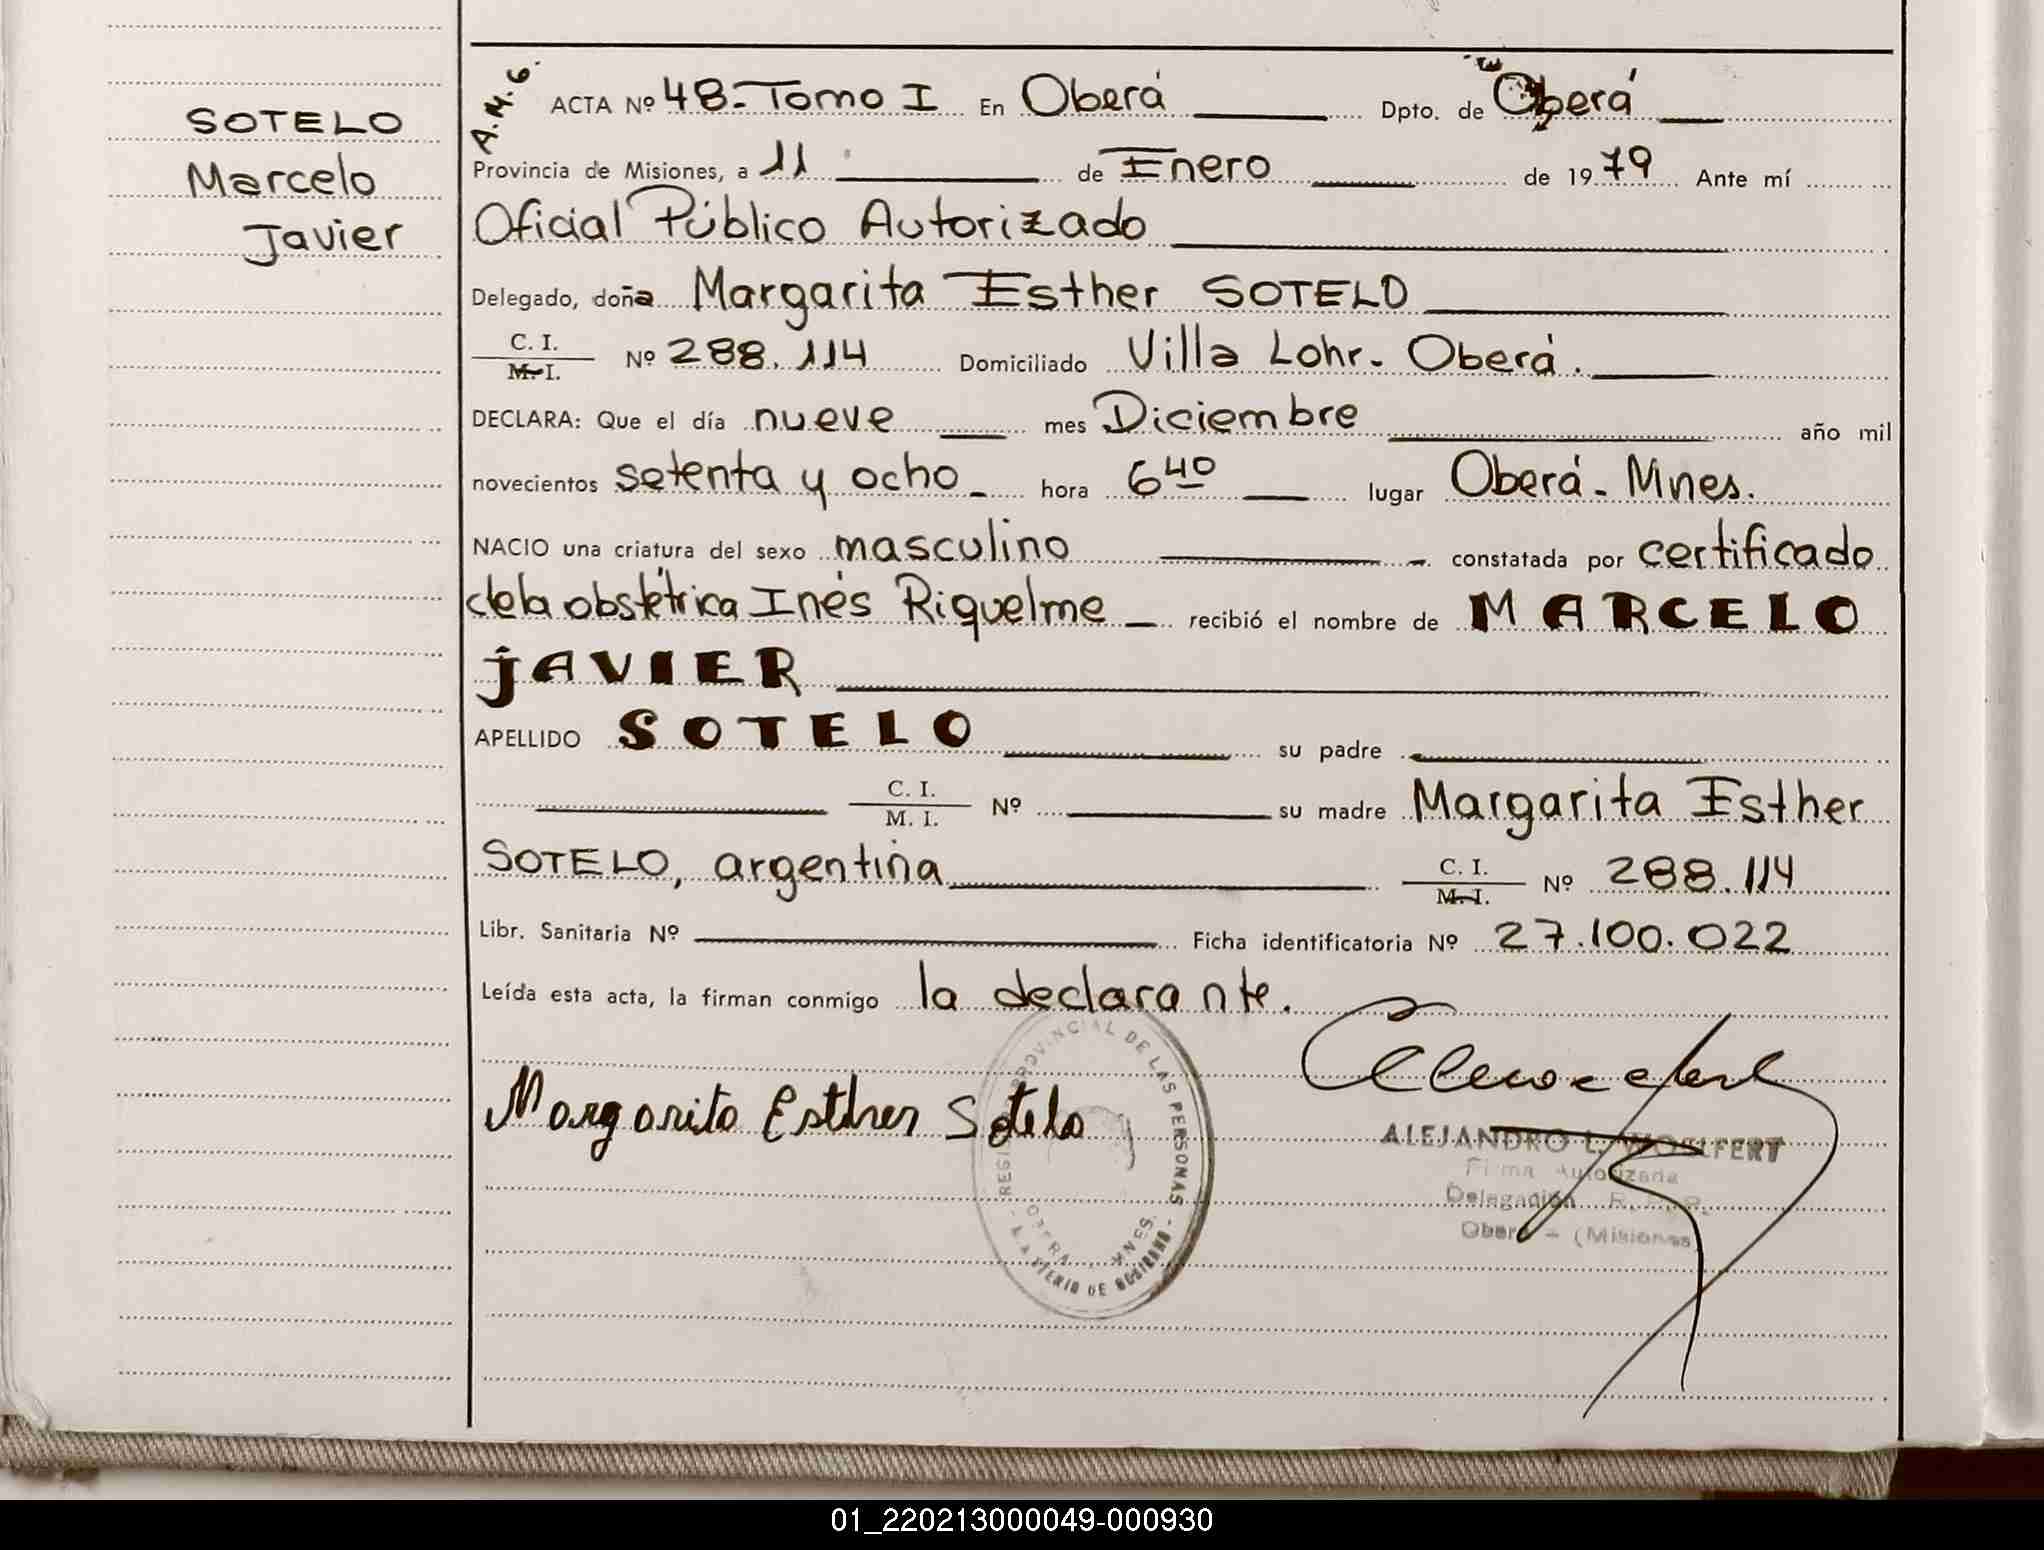 SOTELO
Marcelo
Javier
A.M.G.
ACTA Nº 48-Tomo I En Oberá Dpto. de Oberá
Provincia de Misiones, a 11 de Enero de 1979 Ante mí
Oficial Público Autorizado
Delegado, doña Margarita Esther SOTELO
C. I.
M. I. Nº 288.114 Domiciliado Villa Lohr. Oberá.
DECLARA: Que el día nueve mes Diciembre año mil
novecientos setenta y ocho hora 6 40 lugar Oberá - Mnes.
NACIO una criatura del sexo masculino constatada por certificado
de la obstétrica Inés Riquelme recibió el nombre de MARCELO
JAVIER
APELLIDO SOTELO su padre
C. I.
M. I. Nº su madre Margarita Esther
SOTELO, argentina C. I.
M. I. Nº 288.114
Libr. Sanitaria Nº Ficha identificatoria Nº 27.100.022
Leída esta acta, la firman conmigo la declarante.
Margarita Esther Sotelo
REGISTRO PROVINCIAL DE LAS PERSONAS
OBERA MNES.
ALEJANDRO L. WOELFERT
Firma Autorizada
Delegación
Oberá - (Misiones)
01_220213000049-000930